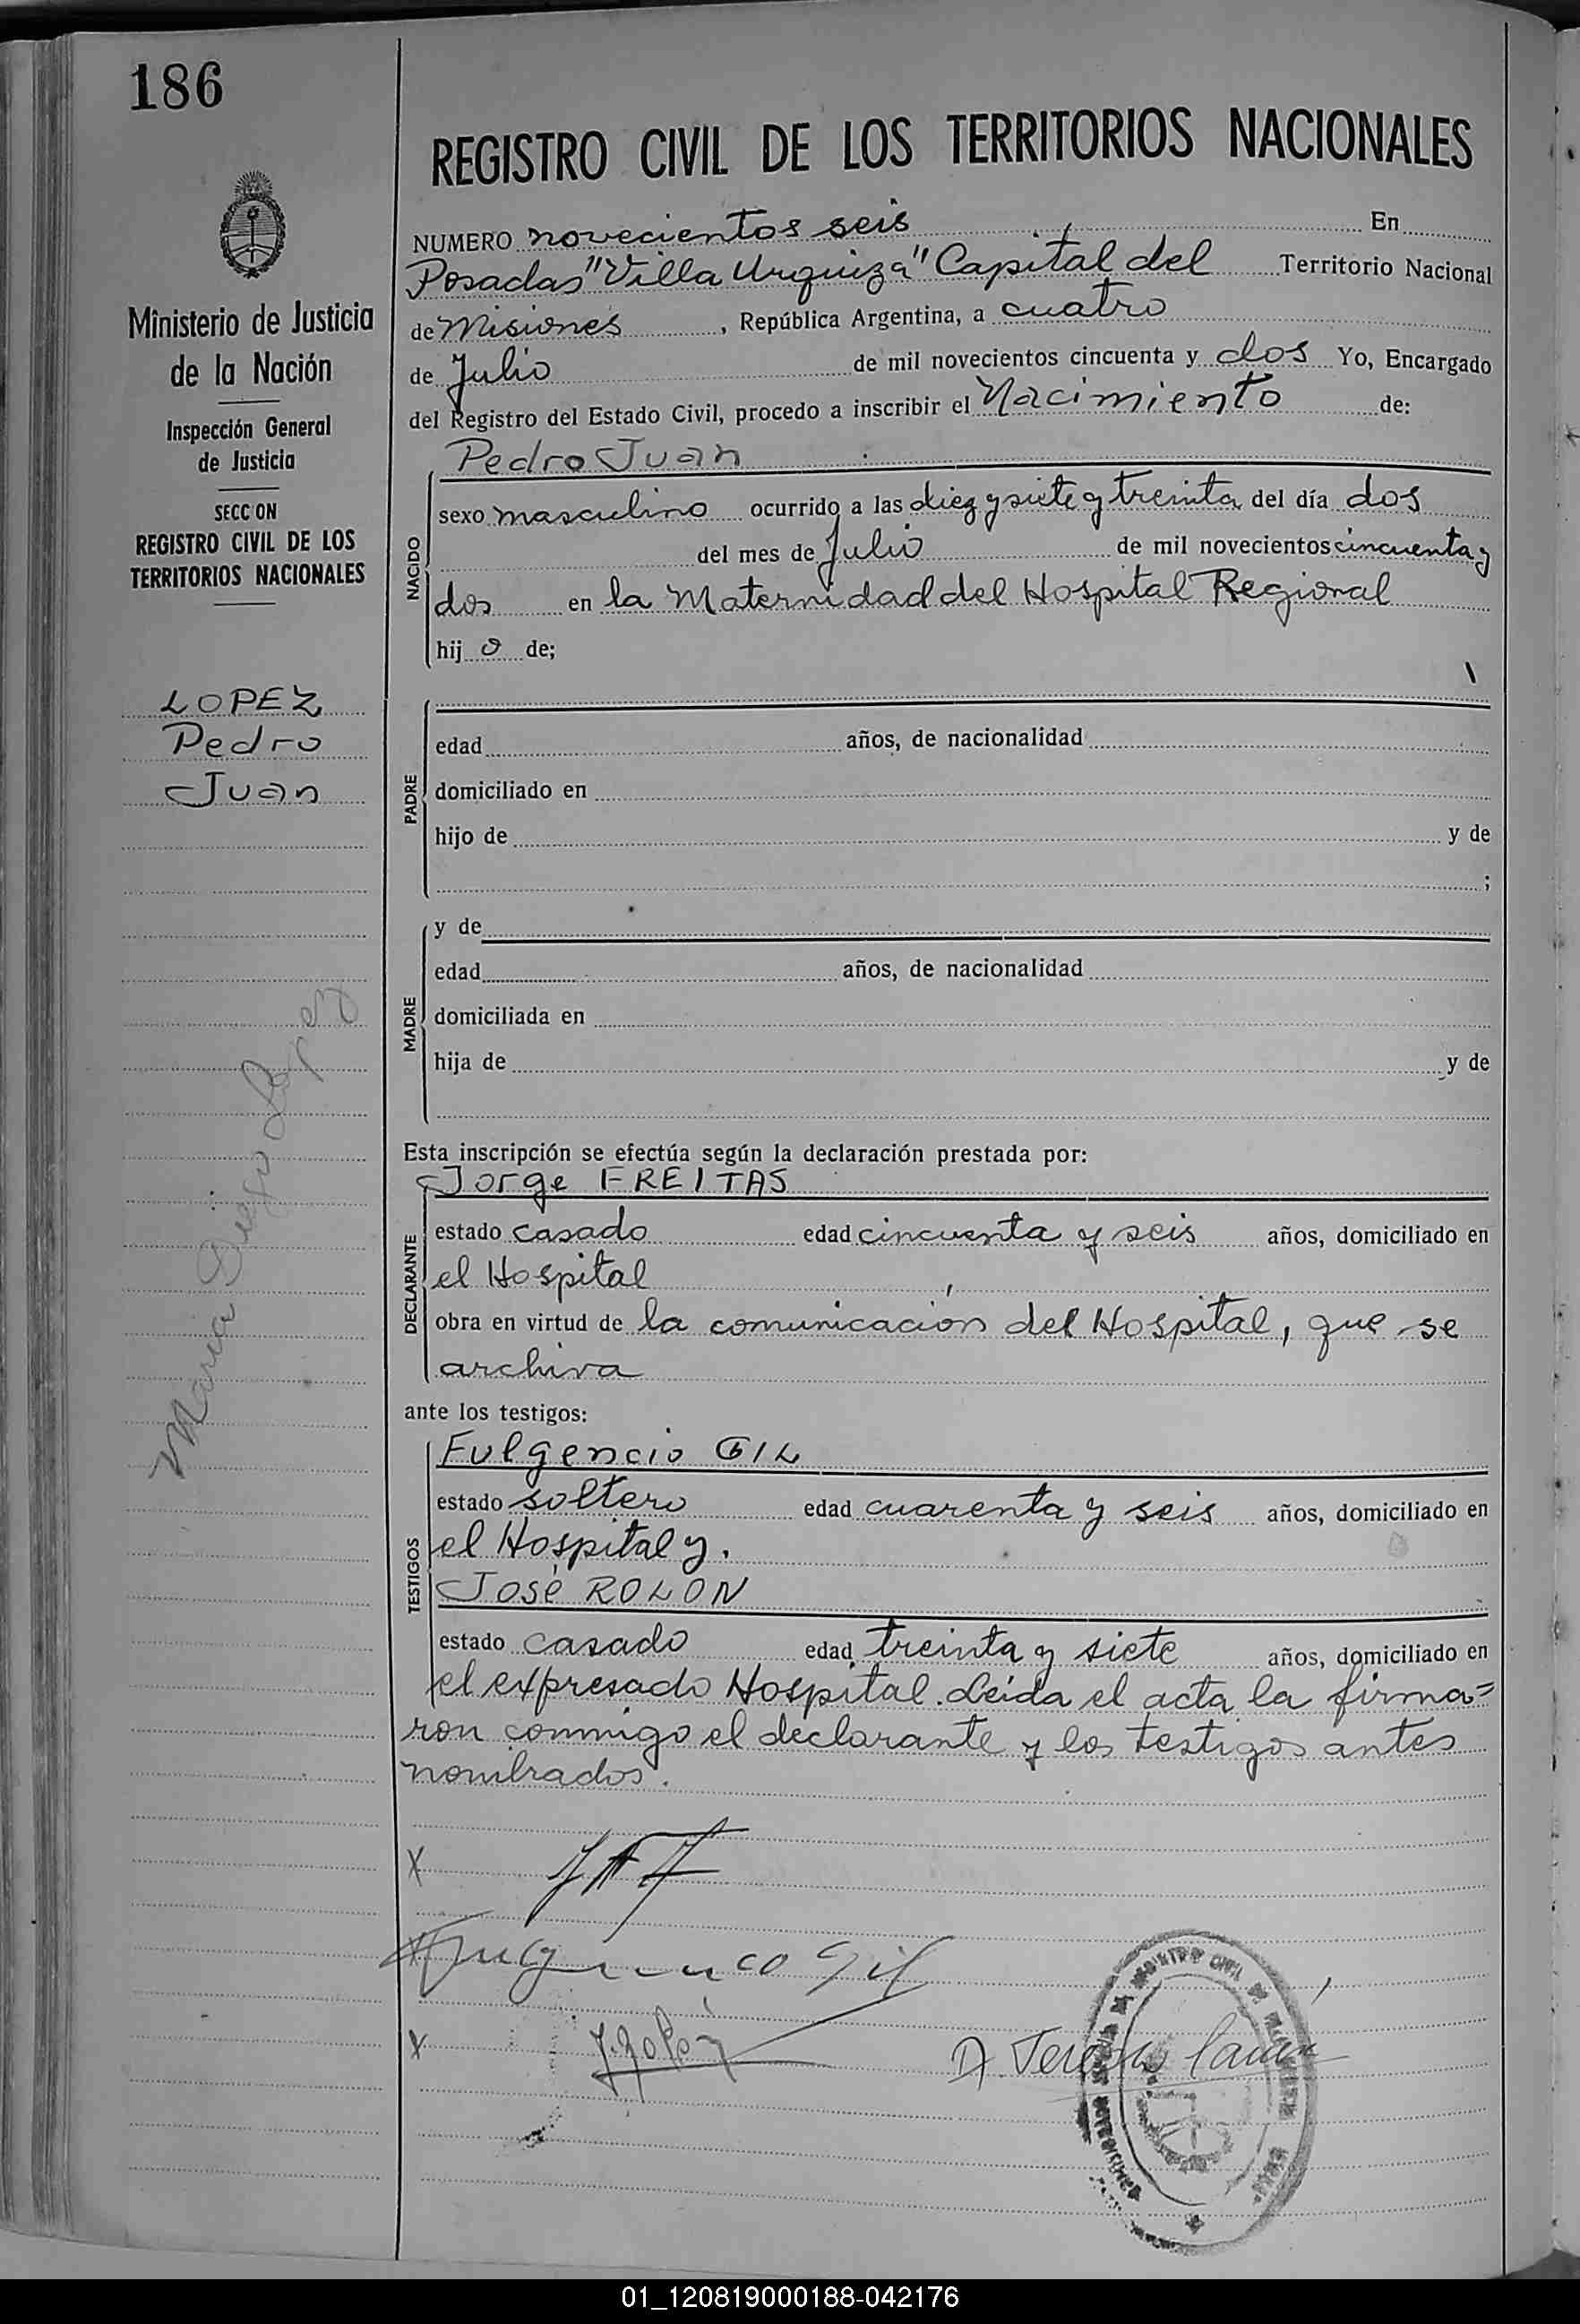 186
REGISTRO CIVIL DE LOS TERRITORIOS NACIONALES
Ministerio de Justicia
de la Nación
Inspección General
de Justicia
SECCON
REGISTRO CIVIL DE LOS
TERRITORIOS NACIONALES
LOPEZ
Pedro
Juan
Maria Lopez
NUMERO novecientos seis En
Posadas "Villa Urquiza" Capital del Territorio Nacional
de Misiones, República Argentina, a cuatro
de Julio de mil novecientos cincuenta y dos Yo, Encargado
del Registro del Estado Civil, procedo a inscribir el Nacimiento de:
Pedro Juan
NACIDO
sexo masculino ocurrido a las diez y siete y treinta del día dos
del mes de Julio de mil novecientos cincuenta y
dos en la Maternidad del Hospital Regional
hijo de;
PADRE
edad años, de nacionalidad
domiciliado en
hijo de y de
;
MADRE
y de
edad años, de nacionalidad
domiciliada en
hija de y de
Esta inscripción se efectúa según la declaración prestada por:
Jorge FREITAS
DECLARANTE
estado casado edad cincuenta y seis años, domiciliado en
el Hospital
obra en virtud de la comunicación del Hospital, que se
archiva
ante los testigos:
Fulgencio GIL
TESTIGOS
estado soltero edad cuarenta y seis años, domiciliado en
el Hospital y.
José ROLON
estado casado edad treinta y siete años, domiciliado en
el expresado Hospital. Leída el acta la firma=
ron conmigo el declarante y los testigos antes
nombrados.
X
Gil
X
01_120819000188-042176